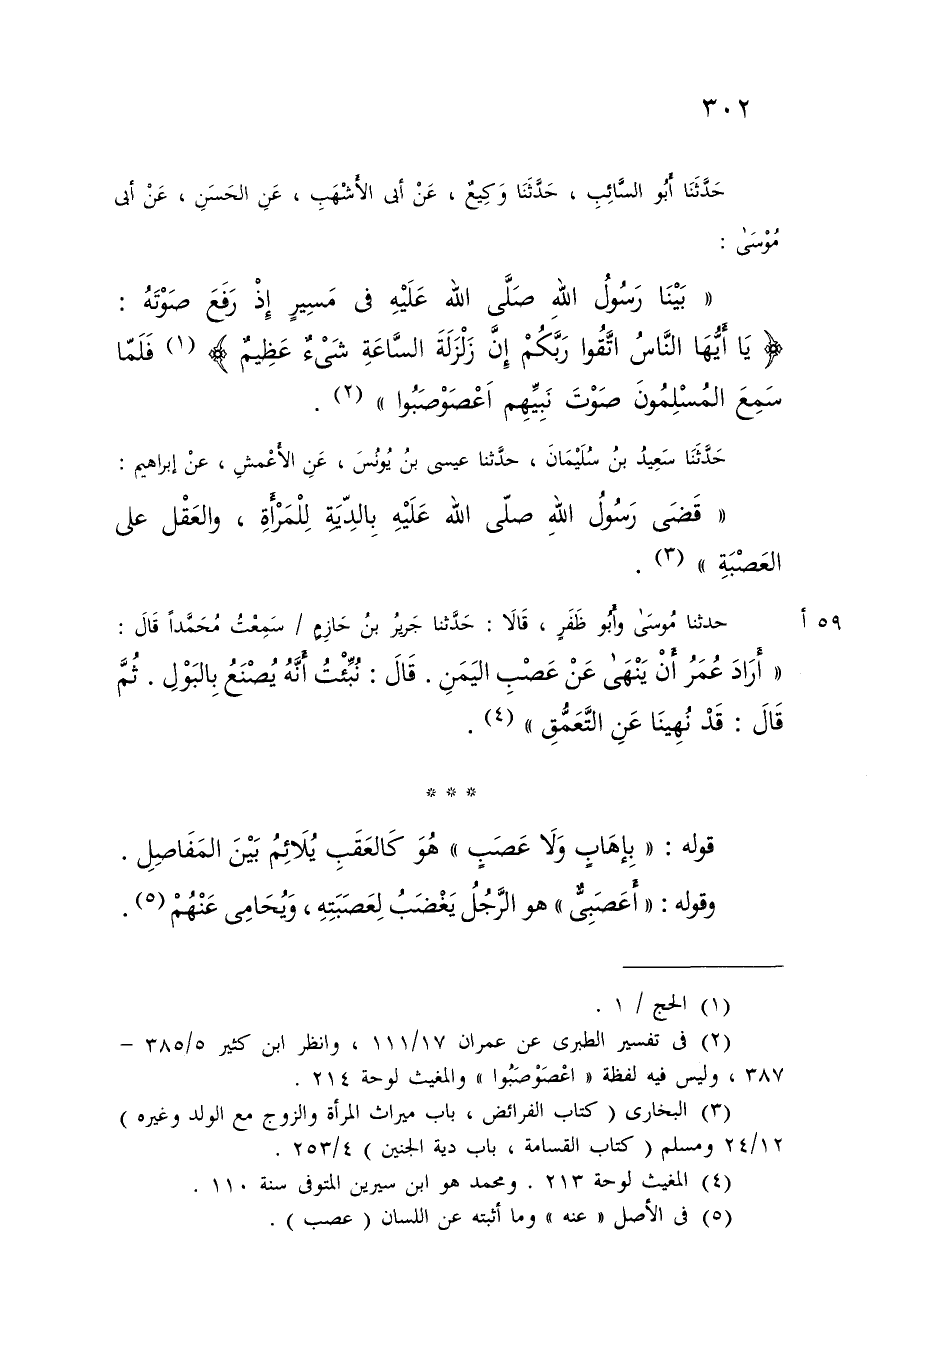 ٣٠٢
حَدَّثَنَا أَبُو السَّائِبِ ، حَدَّثَنَا وَكِيعٌ ، عَنْ أبى الأَشْهَبِ ، عَنِ الحَسَنِ ، عَنْ أبى
مُوْسَىٰ :
« بَيْنَا رَسُولُ اللهِ صَلَّى الله عَلَيْهِ فى مَسِيرٍ إِذْ رَفَعَ صَوْتَهُ :
﴿ يَا أَيُّهَا النَّاسُ اتَّقُوا رَبَّكُمْ إِنَّ زَلْزَلَةَ السَّاعَةِ شَىْءٌ عَظِيمٌ ﴾ (١) فَلَمّا
سَمِعَ المُسْلِمُونَ صَوْتَ نَبِيِّهِم اَعْصَوْصَبُوا » (٢) .
حَدَّثَنَا سَعِيدُ بنُ سُلَيْمَانَ ، حدَّثنا عيسى بنُ يُونُسَ ، عَنِ الأعْمشِ ، عنْ إبراهيم :
« قَضَى رَسُولُ اللهِ صلّى الله عَلَيْهِ بِالدِّيَةِ لِلْمَرْأَةِ ، والعَقْل على
العَصْبَةِ » (٣) .
٥٩ أ حدثنا مُوسَىٰ وأَبُو ظَفَرٍ ، قَالَا : حَدَّثنا جَرِيرُ بنُ حَازِمٍ / سَمِعْتُ مُحَمَّداً قَالَ :
« أَرَادَ عُمَرُ أَنْ يَنْهَىٰ عَنْ عَصْبِ اليَمَنِ . قَالَ : نُبِّئْتُ أَنَّهُ يُصْنَعُ بِالبَوْلِ . ثُمَّ
قَالَ : قَدْ نُهِينَا عَنِ التَّعَمُّقِ » (٤) .
* * *
قوله : « بِإهَابٍ وَلَا عَصَبٍ » هُوَ كَالعَقَبِ يُلَائِمُ بَيْنَ المَفَاصِلِ .
وقوله : « أَعَصَبِىٌّ » هو الرَّجُلُ يَغْضَبُ لِعَصَبَتِهِ ، وَيُحَامِى عَنْهُمْ (٥) .
(١) الحج / ١ .
(٢) فى تفسير الطبرى عن عمران ١١١/١٧ ، وانظر ابن كثير ٣٨٥/٥ –
٣٨٧ ، وليس فيه لفظة « اعْصَوْصَبُوا » والمغيث لوحة ٢١٤ .
(٣) البخارى ( كتاب الفرائض ، باب ميراث المرأة والزوج مع الولد وغيره )
٢٤/١٢ ومسلم ( كتاب القسامة ، باب دية الجنين ) ٢٥٣/٤ .
(٤) المغيث لوحة ٢١٣ . ومحمد هو ابن سيرين المتوفى سنة ١١٠ .
(٥) فى الأصل « عنه » وما أثبته عن اللسان ( عصب ) .